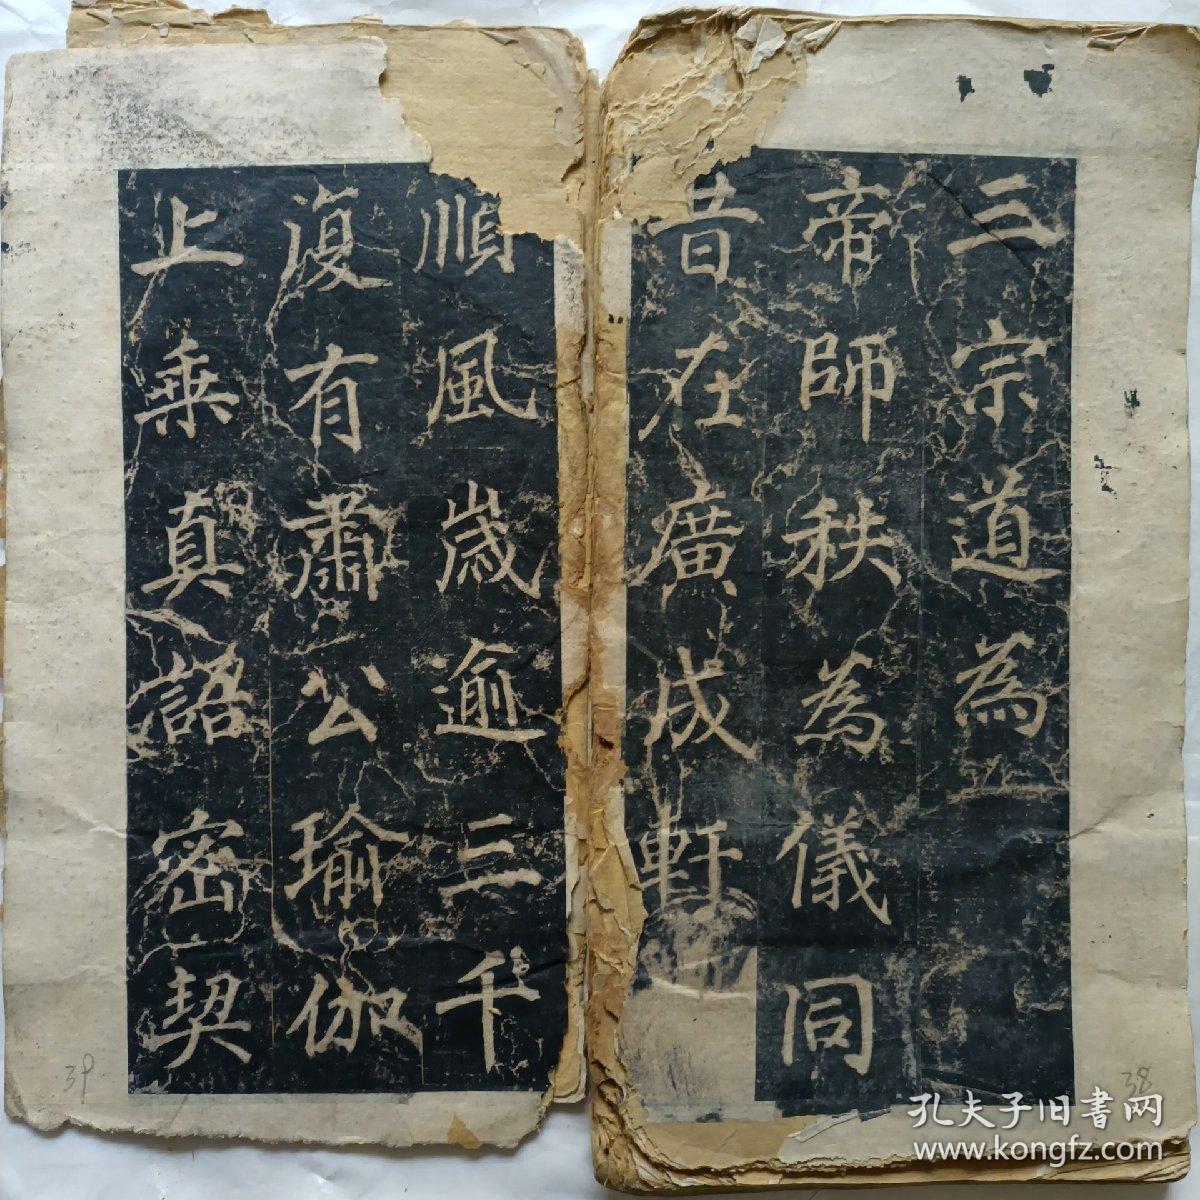 三宗道為
帝師秩為儀同
昔在廣成軒
順風歲逾三千
復有肅公瑜伽
止乗真語密契
38
39
孔夫子旧書网
www.kongfz.com